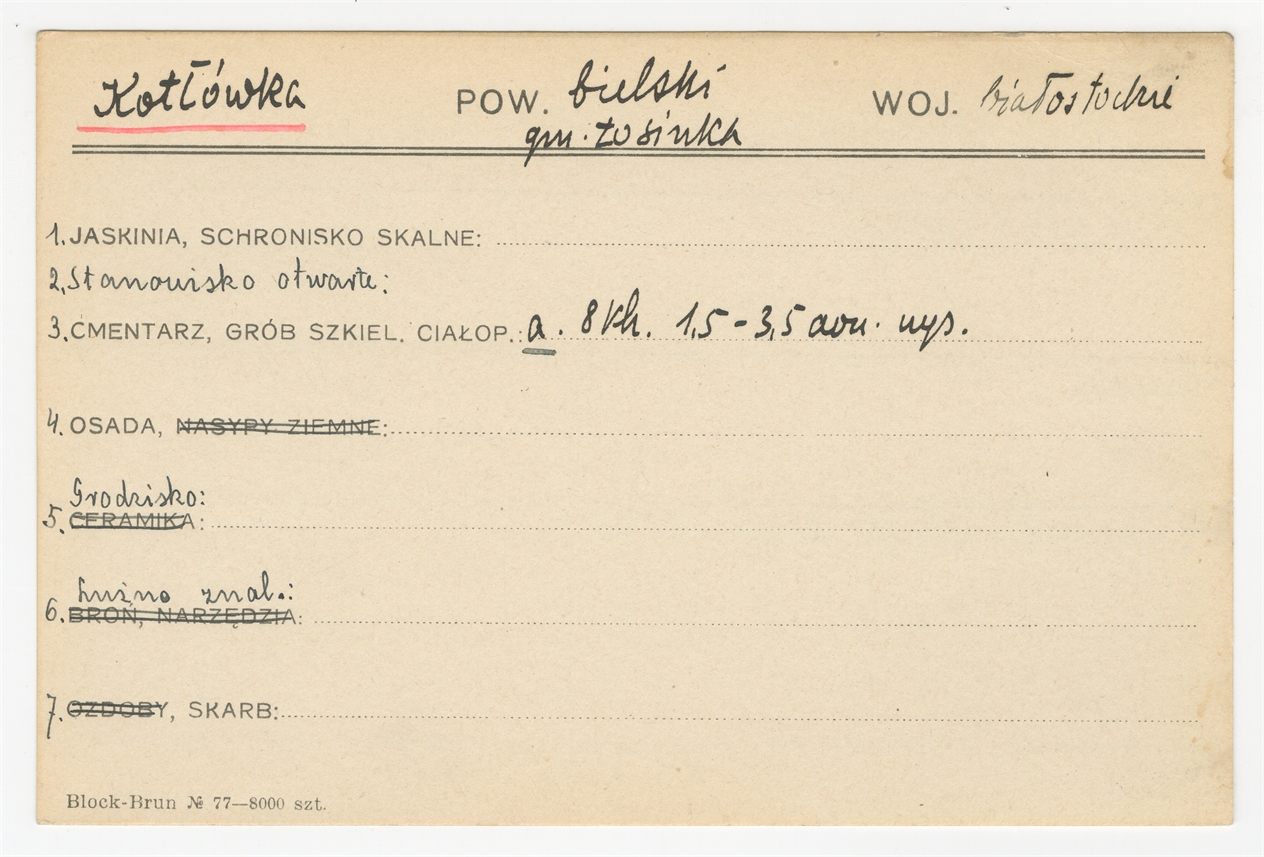 Kotłówka POW. bielski WOJ. białostockie
gm. Łosinka
1. JASKINIA, SCHRONISKO SKALNE:
2. Stanowisko otwarte:
3. CMENTARZ, GRÓB SZKIEL. CIAŁOP.: a. 8 kh. 1,5-3,5 wys.
4. OSADA, NASYPY ZIEMNE:
Grodzisko:
5. CERAMIKA:
Luźno znal.:
6. BROŃ, NARZĘDZIA:
7. OZDOBY, SKARB:
Block-Brun № 77—8000 szt.